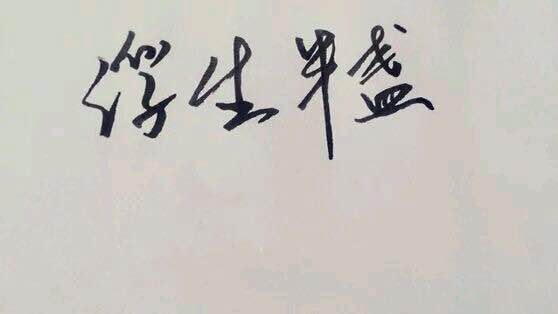 浮生半盏